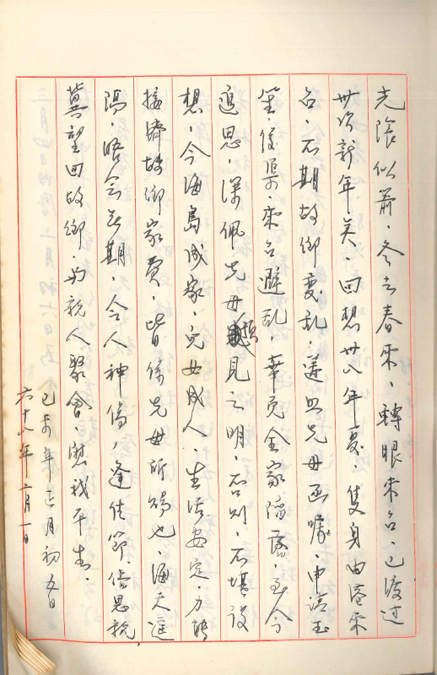 光陰似箭，冬去春來，轉眼來台，已渡過
卅次新年矣，回想卅八年夏，隻身由港來
台，不期故鄉變乱，遵照先母函囑，申請玉
笙，俊
來台避乱，幸免全家陷落，至今
追思，深佩先母預見之明，否則，不堪設
想，今海島成家，兒女成人，生活安定，力能
接濟故鄉家費，皆係先母所賜也，海天遥
隔，晤会無期，令人神傷，逢佳節，倍思親，
冀望回故鄉，與親人聚會，慰我平生。
己未年正月初五日
六十八年二月一日